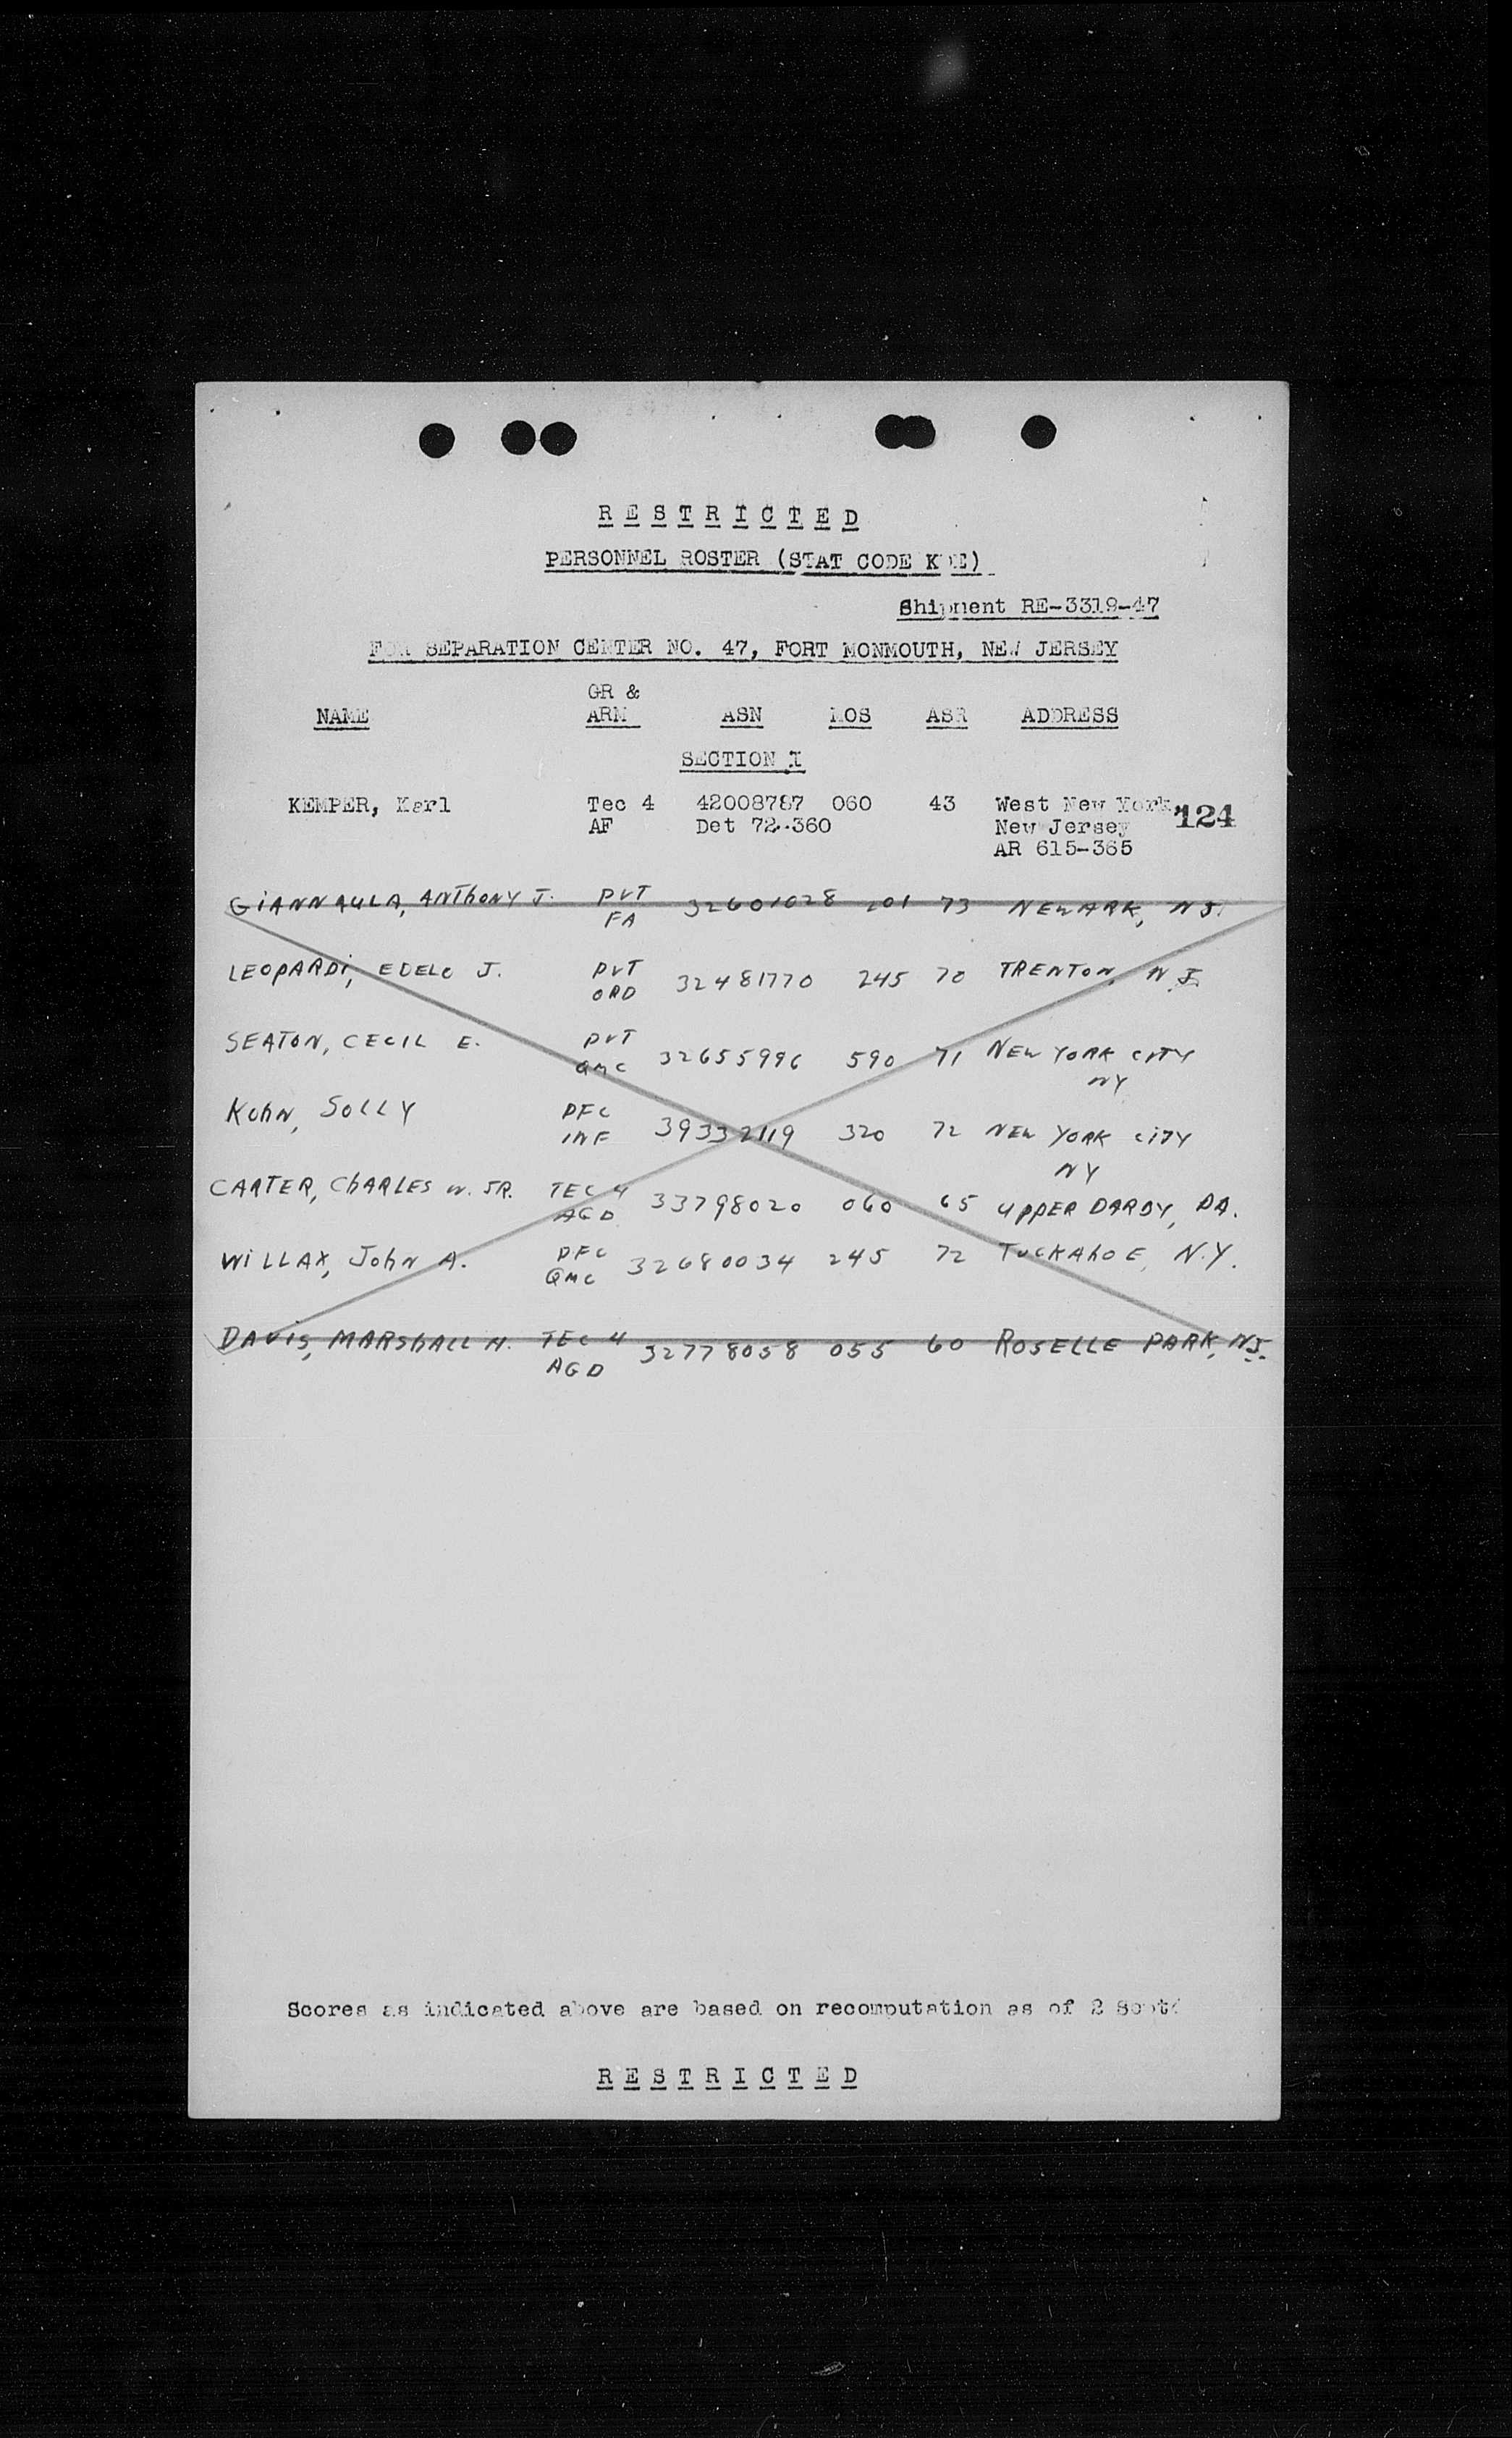 RESTRICTED
PERSONNEL ROSTER (STAT CODE
Shipment RE-3319-47
FOR SEPARATION CENTER NO. 47, FORT MONMOUTH, NEW JERSEY
GR &
NAME ARM ASN MOS ASR ADDRESS
SECTION I
KEMPER, Karl Tec 4 42008787 060 43 West New York, 124
AF Det 72-360 New Jersey
AR 615-365
GIANNAULA, ANThONY J. PVT 32601028 201 73 NEWARK, NJ.
FA
LEOPARDi, EDELO J. PVT 32481770 245 70 TRENTON, NJ.
ORD
SEATON, CECIL E. PVT 32655996 590 71 NEW YORK CITY
QMC NY
KohN, SOLLY PFC 39332119 320 72 NEW YORK CiTY
INF NY
CARTER, ChARLES W. JR. TEC 4 33798020 060 65 UPPER DARBY, PA.
AGD
WiLLAX, JohN A. PFC 32680034 245 72 TUCKAhOE, N.Y.
QMC
DAViS, MARShALL H. TEC 4 32778058 055 60 ROSELLE PARK, NJ.
AGD
Scores as indicated above are based on recomputation as of 2
RESTRICTED